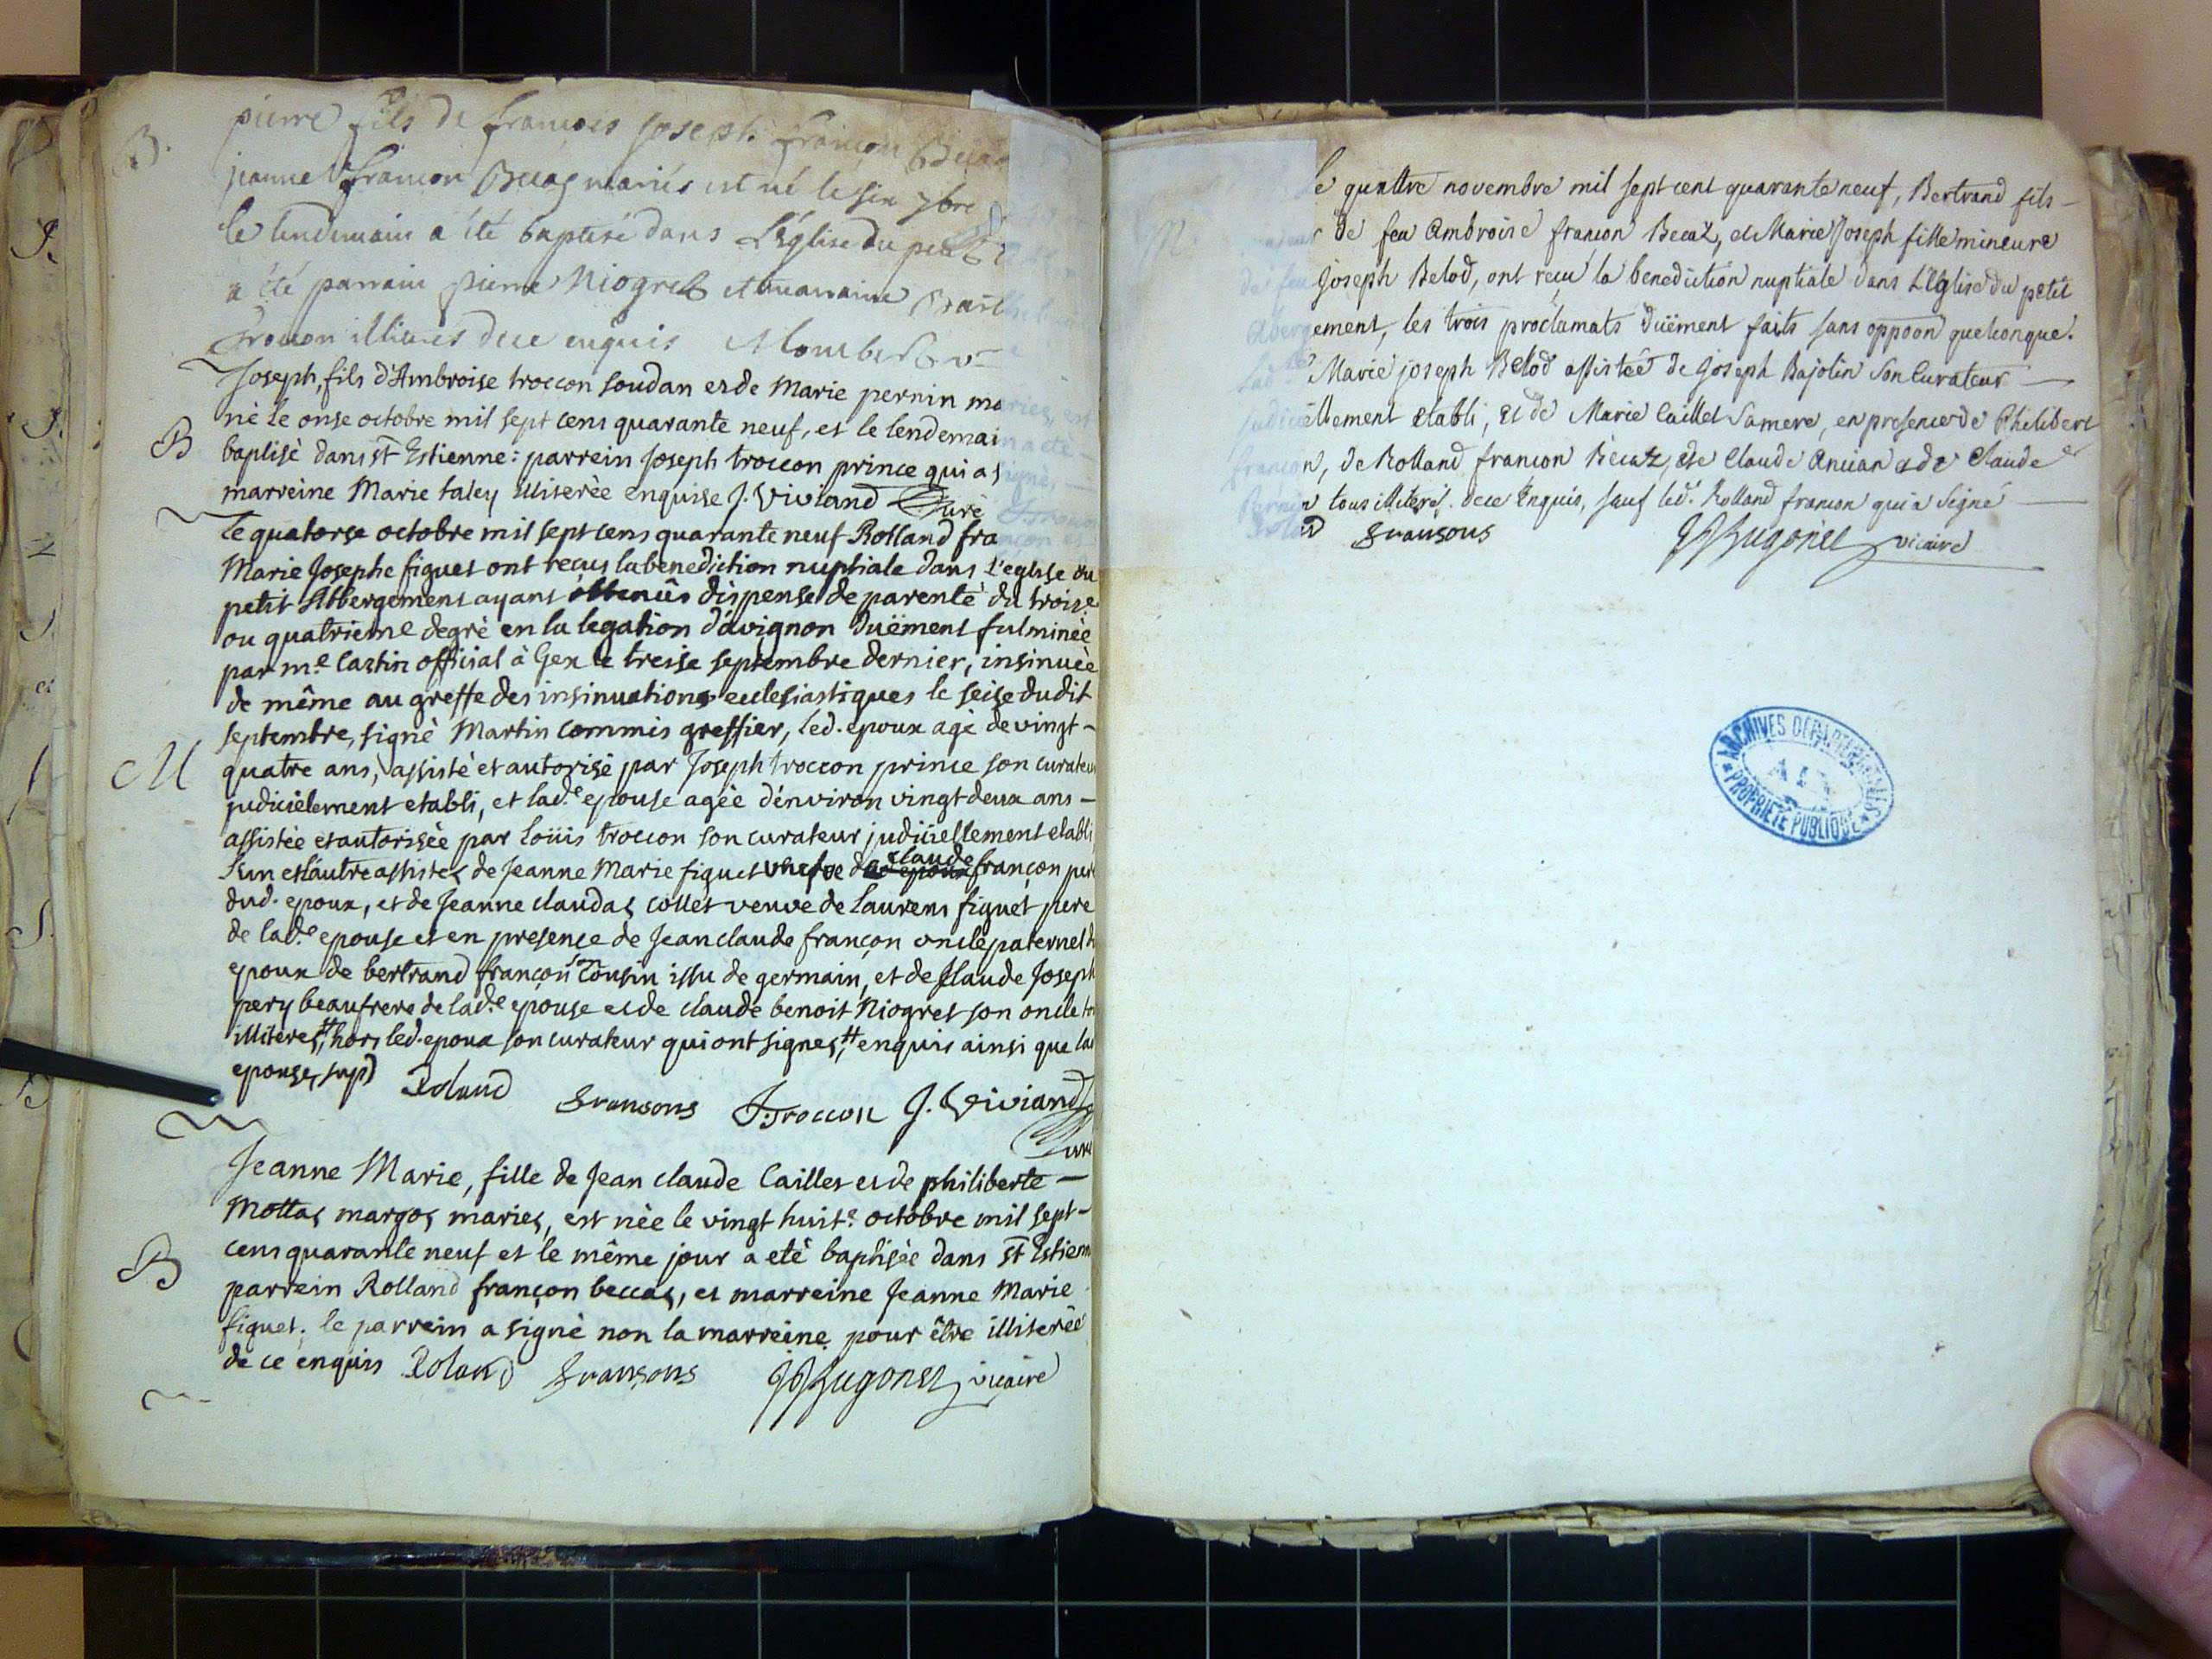 B.
pierre fils de françois joseph françon Beca
jeanne françon Becas mariés est né le six 7bre
le lendemain a été baptisé dans L'Eglise du petit
a été parrain pierre Niogret et marraine
illiterés de ce enquis
Joseph, fils d'Ambroise troccon soudan et de Marie pernin mariés, est
né le onse octobre mil sept cens quarante neuf, et le lendemain a eté
B
baptisé dans st Estienne: parrein Joseph troccon prince qui a signé,
marreine Marie taley illiterée enquise J. Viviand Curé
le quatorse octobre mil sept cens quarante neuf Rolland françon et
Marie Josephe figuet ont reçus la benediction nuptiale dans l'eglise du
petit Abbergement ayant obtenûs dispense de parenté du troise
ou quatrieme degré en la legation d'avignon duëment fulminée
par me Castin official à Gex le treise septembre dernier, insinuée
de même au greffe des insinuations ecclesiastiques le seise dudit
septembre, signé Martin commis greffier, led. epoux agé de vingt-
M
quatre ans, assisté et autorisé par Joseph troccon prince son curateur
judicièlement etabli, et lad.e epouse agée d'environ vingt deux ans -
assistée et autorisée par Loüis troccon son curateur judiciellement etabli
l'un et l'autre assistés de Jeanne Marie figuet vuefve de claude françon pere
dud. epoux, et de Jeanne claudas collet veuve de laurens figuet pere
de lad.e epouse et en presence de Jean claude françon oncle paternel
epoux de bertrand françon Cousin issu de germain, et de Claude Joseph
pery beaufrere de lad.e epouse et de claude benoit Niogret son oncle
illiterés, # hors led. epoux son curateur qui ont signés, # enquis ainsi que lad
epouse,
Roland fransons J. Troccon J. Viviand
Curé
Jeanne Marie, fille de Jean claude Caillet et de philiberte -
Mottas margos mariés, est née le vingt huit.e octobre mil sept-
B
cens quarante neuf et le même jour a eté baptisée dans st Estienn
parrein Rolland françon beccas, et marreine Jeanne Marie
figuet. le parrein a signé non la marreine pour être illiterée
de ce enquis Roland fransons Hugonet vicaire
M.
le quattre novembre mil sept cent quarante neuf, Bertrand fils -
de feu Ambroise françon Becaz, et Marie Joseph fille mineure
de feu Joseph Belod, ont reçu la benediction nuptiale dans L'Eglise du petit
Abergement, les trois proclamats duëment faits sans oppoon quelconque.
lad.e Marie joseph Belod assistée de Joseph Bajolin son Curateur
judiciellement etabli, et de Marie Caillet sa mere, en presence de Philibert
françon, de Rolland françon Bècaz, de Claude Ancian et de Claude
Pernin tous illiterés. de ce Enquis, sauf led. Rolland françon qui a signé
Roland fransons Hugonet vicaire
ARCHIVES DEPARTEMENTALES
AIN
PROPRIÉTÉ PUBLIQUE